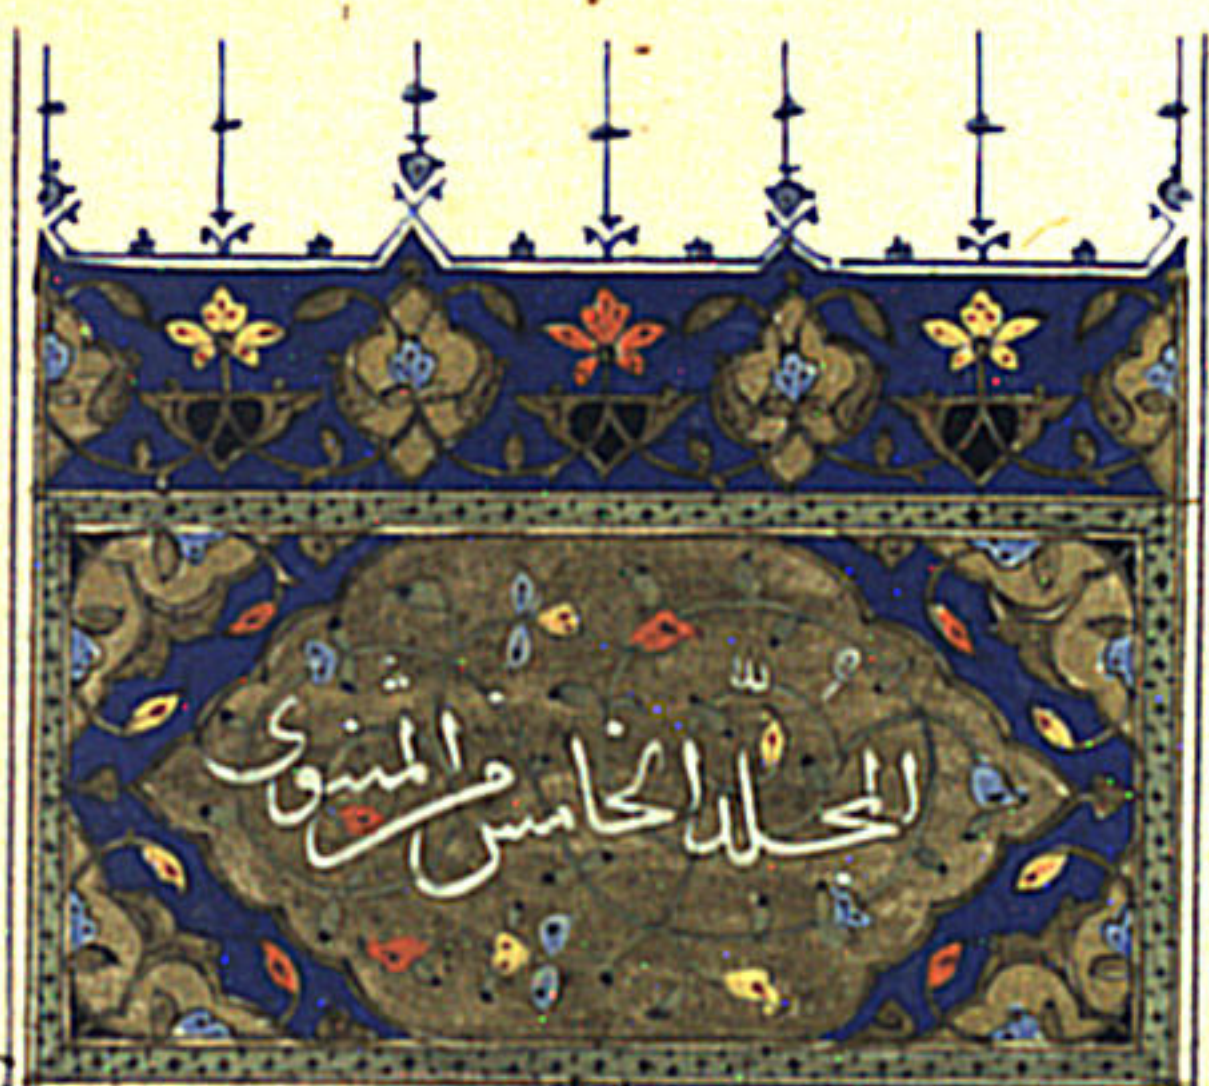 المجلد الخامس من المثنوی